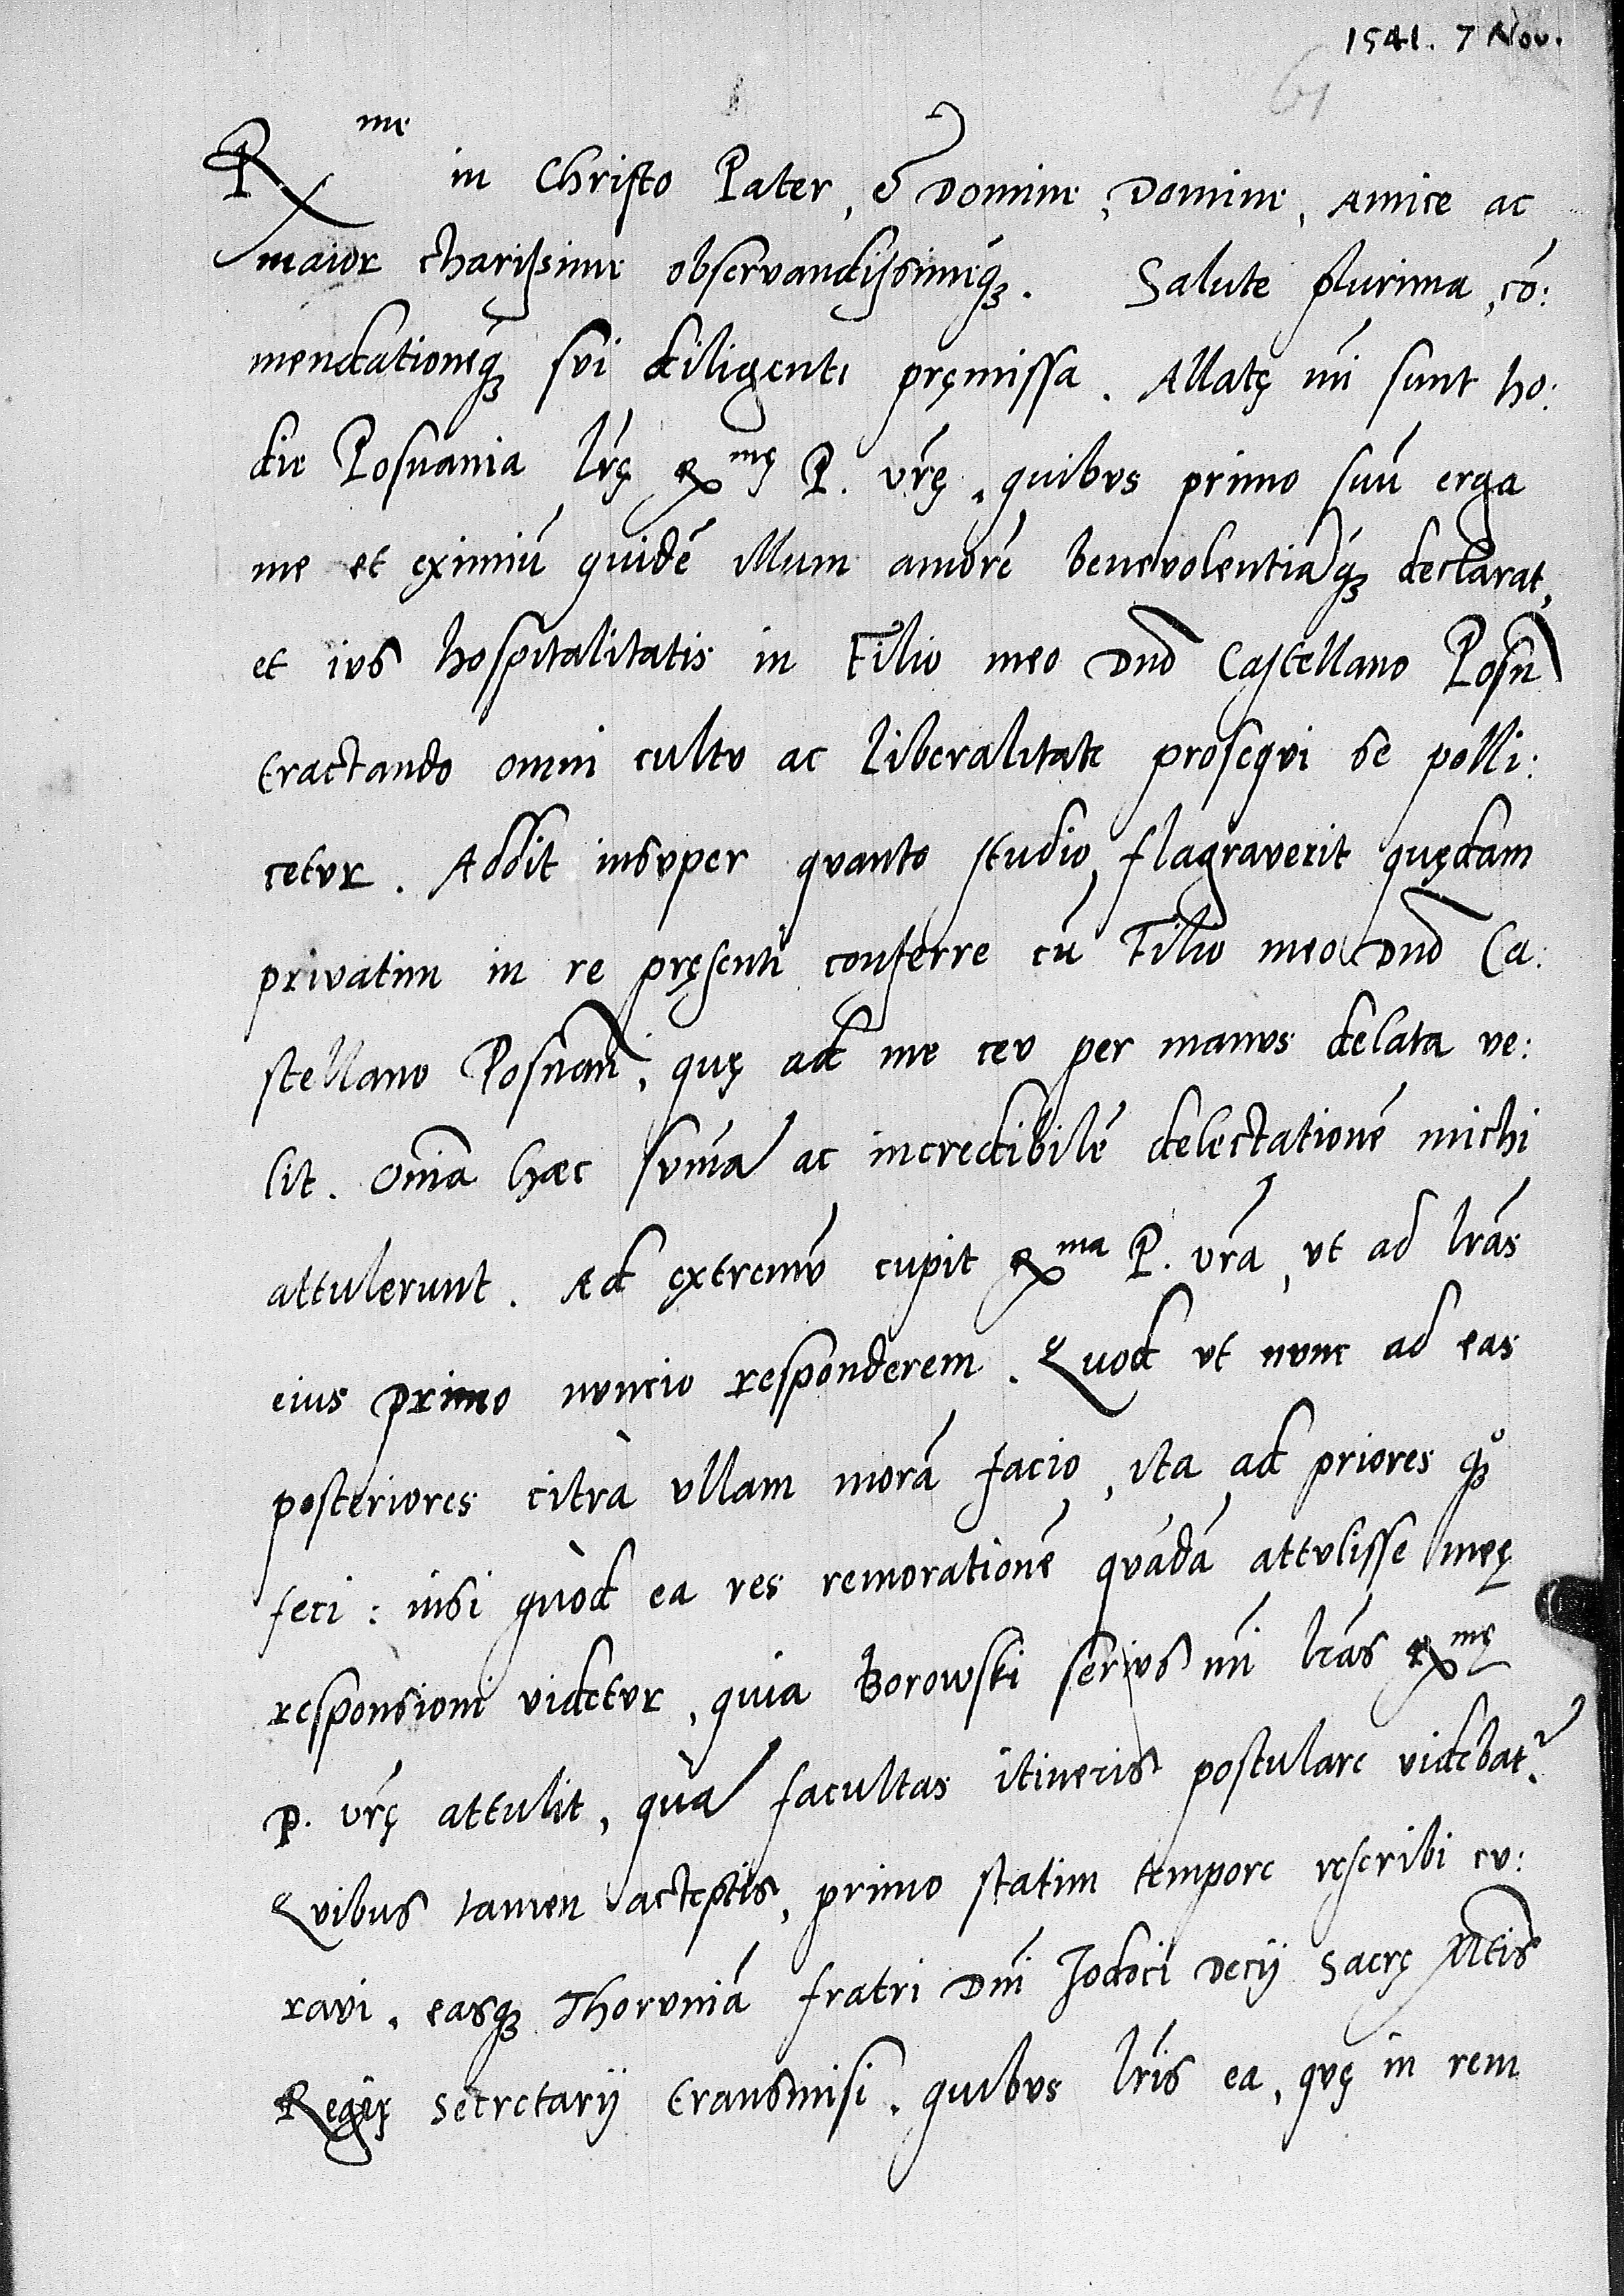 1541. 7 Nov.
61
R me in Christo Pater, et Domine, Domine, Amice ac
maior charissime observandissimeq3. Salute plurima, cō:
mendationeq3 sui diligenti pręmissa. Allatę mī sunt ho:
die Posnania lrę Rmę P. vrę, quibvs primo suū erga
me et eximiū quidē illum amorē benevolentiāq3 declarat,
et ivs hospitalitatis in Filio meo Dnō Castellano Posn
tractando omni cultv ac liberalitate proseqvi se polli:
cetvr. Addit insvper qvanto studio flagraverit quędam
privatim in re pręsenti conferre cū Filio meo Dnō Ca:
stellano Posnan, quę ad me cev per manvs delata ve:
lit. Omīa hæc svmā ac incredibilē delectationē michi
attulervnt. Ad extremū cupit Rma P. vrā, vt ad lrās
eius primo nvncio responderem. Quod vt nvnc ad eas
posteriores citrà vllam morā facio, ita ad priores q3o
feci: nisi quòd ea res remorationē qvādā attvlisse meę
responsioni videtvr, quia Borowski serivs mī lrās Rmę
P. vrę attulit, quā facultas itineris postulare videbatr.
Qvibus tamen acceptis, primo statim tempore rescribi cv:
ravi, easq3 Thorvniā fratri Dnī Jodoci Decij Sacrę Mtis
Regię Secretarij transmisi, quibvs lrīs ea, qvę in rem